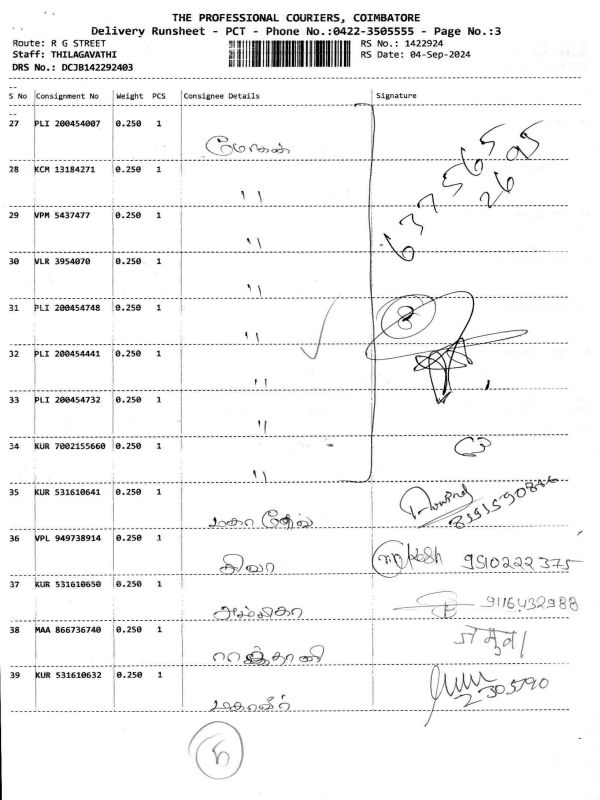 THE PROFESSIONAL COURIERS, COIMBATORE
Delivery Runsheet - PCT - Phone No.:0422-3505555 - Page No.:3
Route: R G STREET
RS No.: 1422924
Staff: THILAGAVATHI
RS Date: 04-Sep-2024
DRS No.: DCJB142292403
--
S No Consignment No Weight PCS Consignee Details Signature
--
27 PLI 200454007 0.250 1
637 565 26 95
28 KCM 13184271 0.250 1
"
29 VPM 5437477 0.250 1
"
30 VLR 3954070 0.250 1
"
31 PLI 200454748 0.250 1
"
32 PLI 200454441 0.250 1
"
33 PLI 200454732 0.250 1
"
34 KUR 7002155660 0.250 1
"
35 KUR 531610641 0.250 1
மகா
36 VPL 949738914 0.250 1
சிவா 9510222375
37 KUR 531610650 0.250 1
அம்பிகா 9116432988
38 MAA 866736740 0.250 1
जमुना
39 KUR 531610632 0.250 1
மகாவீர் 2305790